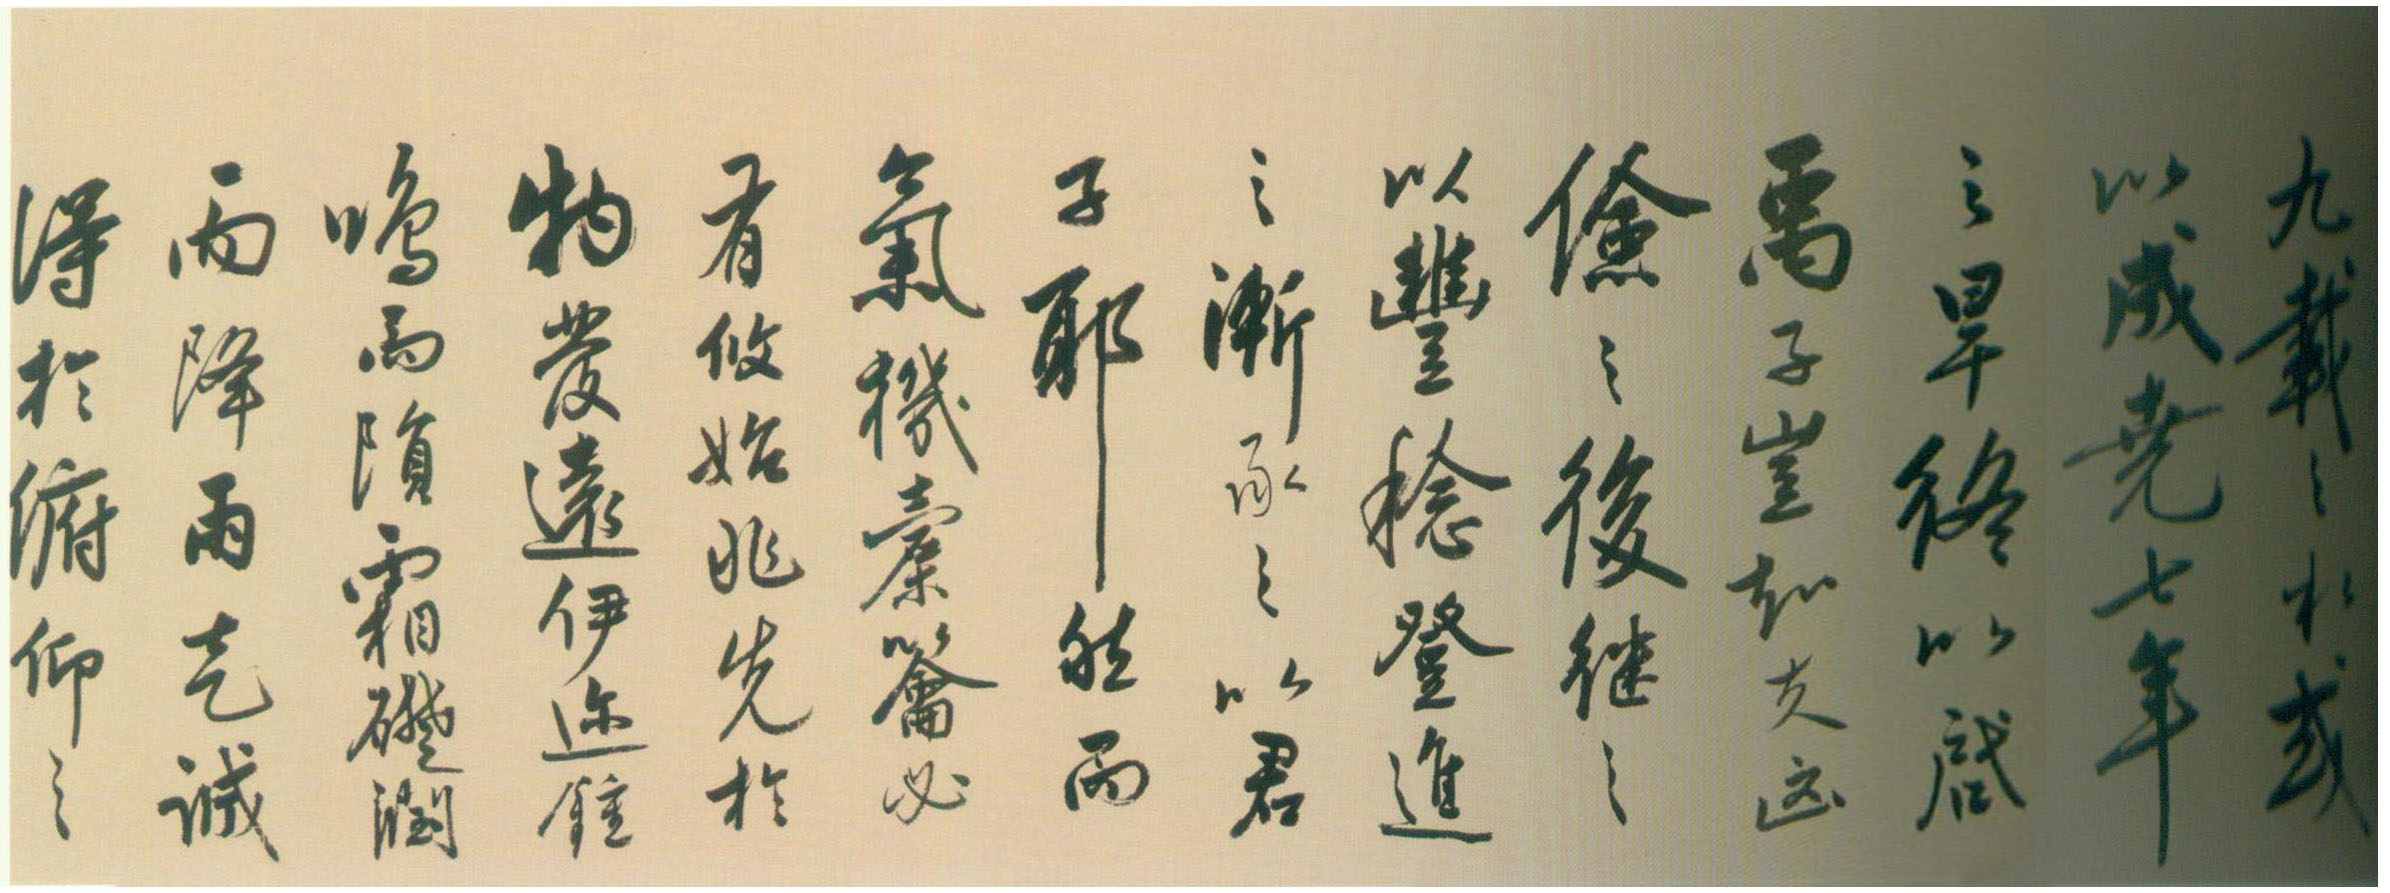 九載之水或
以成堯七年
之旱終以啟
禹子豈知夫凶
儉之後継之
以豐稔登進
之漸承之以君
子耶然而
氣機橐籥必
有攸始兆先於
物發遠伊迩鍾
鳴而隕霜礎潤
而降雨气誠
得於俯仰之